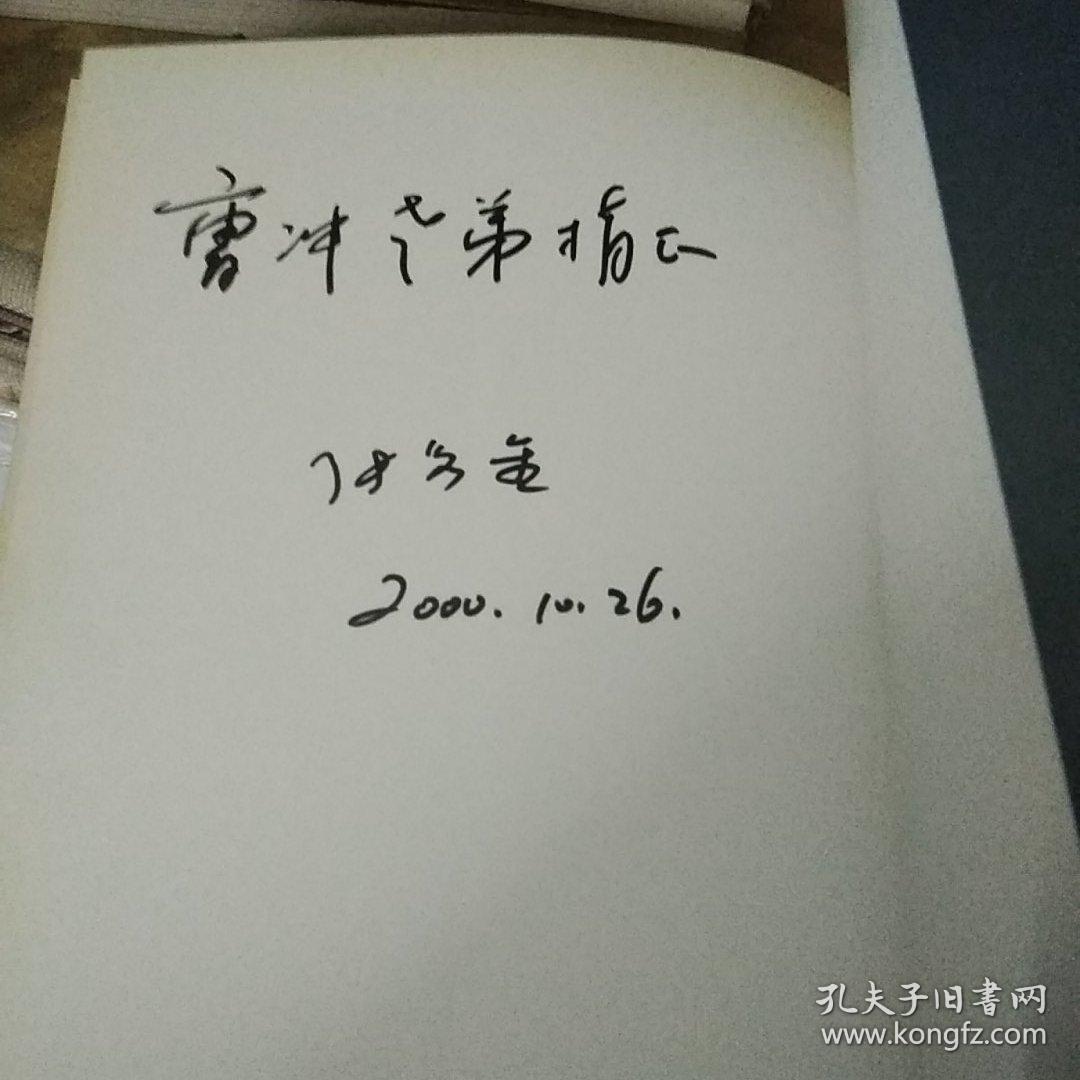 冲老弟指正
2000.10.26.
孔夫子旧書网
www.kongfz.com